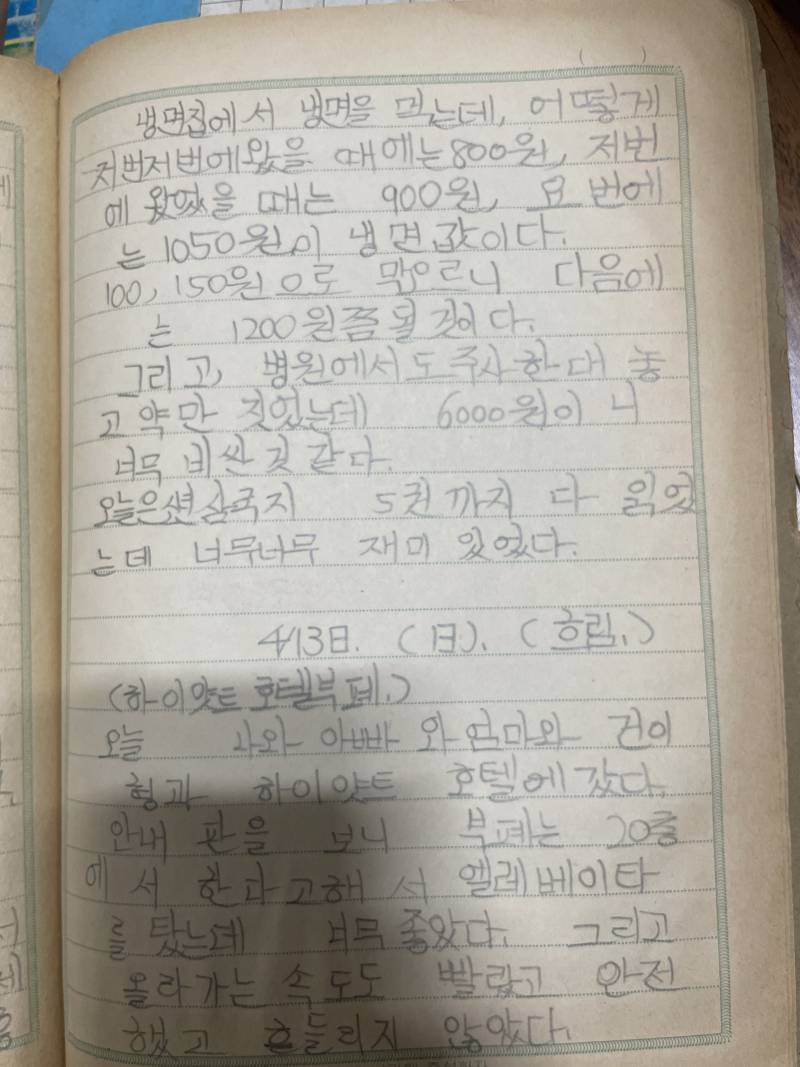 냉면집에서 냉면을 먹는데, 어떻게
저번저번에왔을 때에는 800원, 저번
에 왔었을 때는 900원, 요번에
는 1050원이 냉면값이다.
100, 150원으로 막오르니 다음에
는 1200원쯤 될 것이다.
그리고, 병원에서도 주사 한대 놓
고 약만 짓었는데 6000원이 니
너무 비싼 것 같다.
오늘은 삼국지 5권 까지 다 읽었
는데 너무너무 재미 있었다.
4/13日. (日). (흐림.)
(하이얏트 호텔부페.)
오늘 나와 아빠 와 엄마와 건이
형과 하이얏트 호텔에 갔다.
안내 판을 보니 부페는 20층
에 서 한다고해 서 엘레베이타
를 탔는데 너무 좋았다. 그리고
올라가는 속도도 빨랐고 안전
했고 흔들리지 않았다.